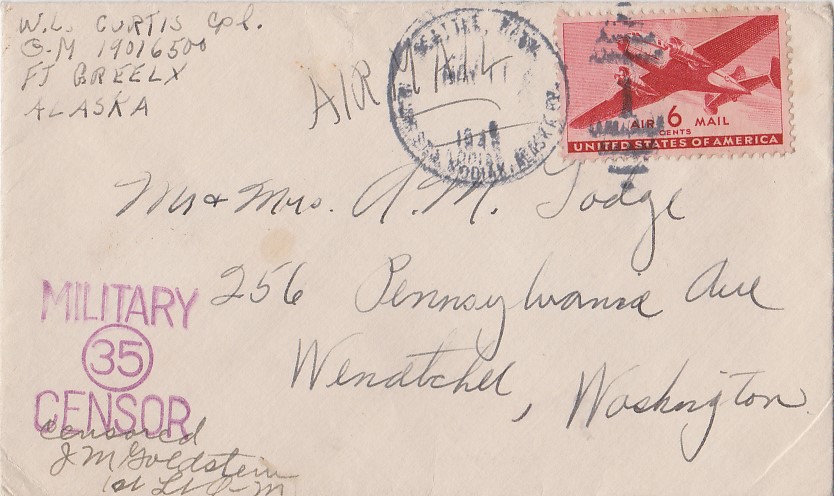 W.L. CURTIS Cpl.
Q-M 19016500
FT GREELY
ALASKA
AIR MAIL
SEATTLE, WASH.
MAY 11
KODIAK, ALASKA
AIR 6 MAIL
CENTS
UNITED STATES OF AMERICA
Mr & Mrs. A.M. Todge
256 Pennsylvania Ave
Wenatchee, Washington
MILITARY
35
CENSOR
Censored
J M Goldstein
1st Lt Q-M